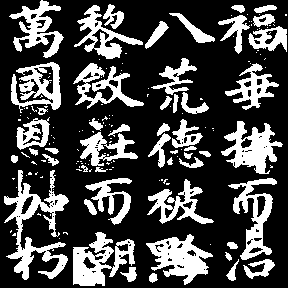 福垂拱而治
八荒德被黔
黎斂衽而朝
萬國恩加朽